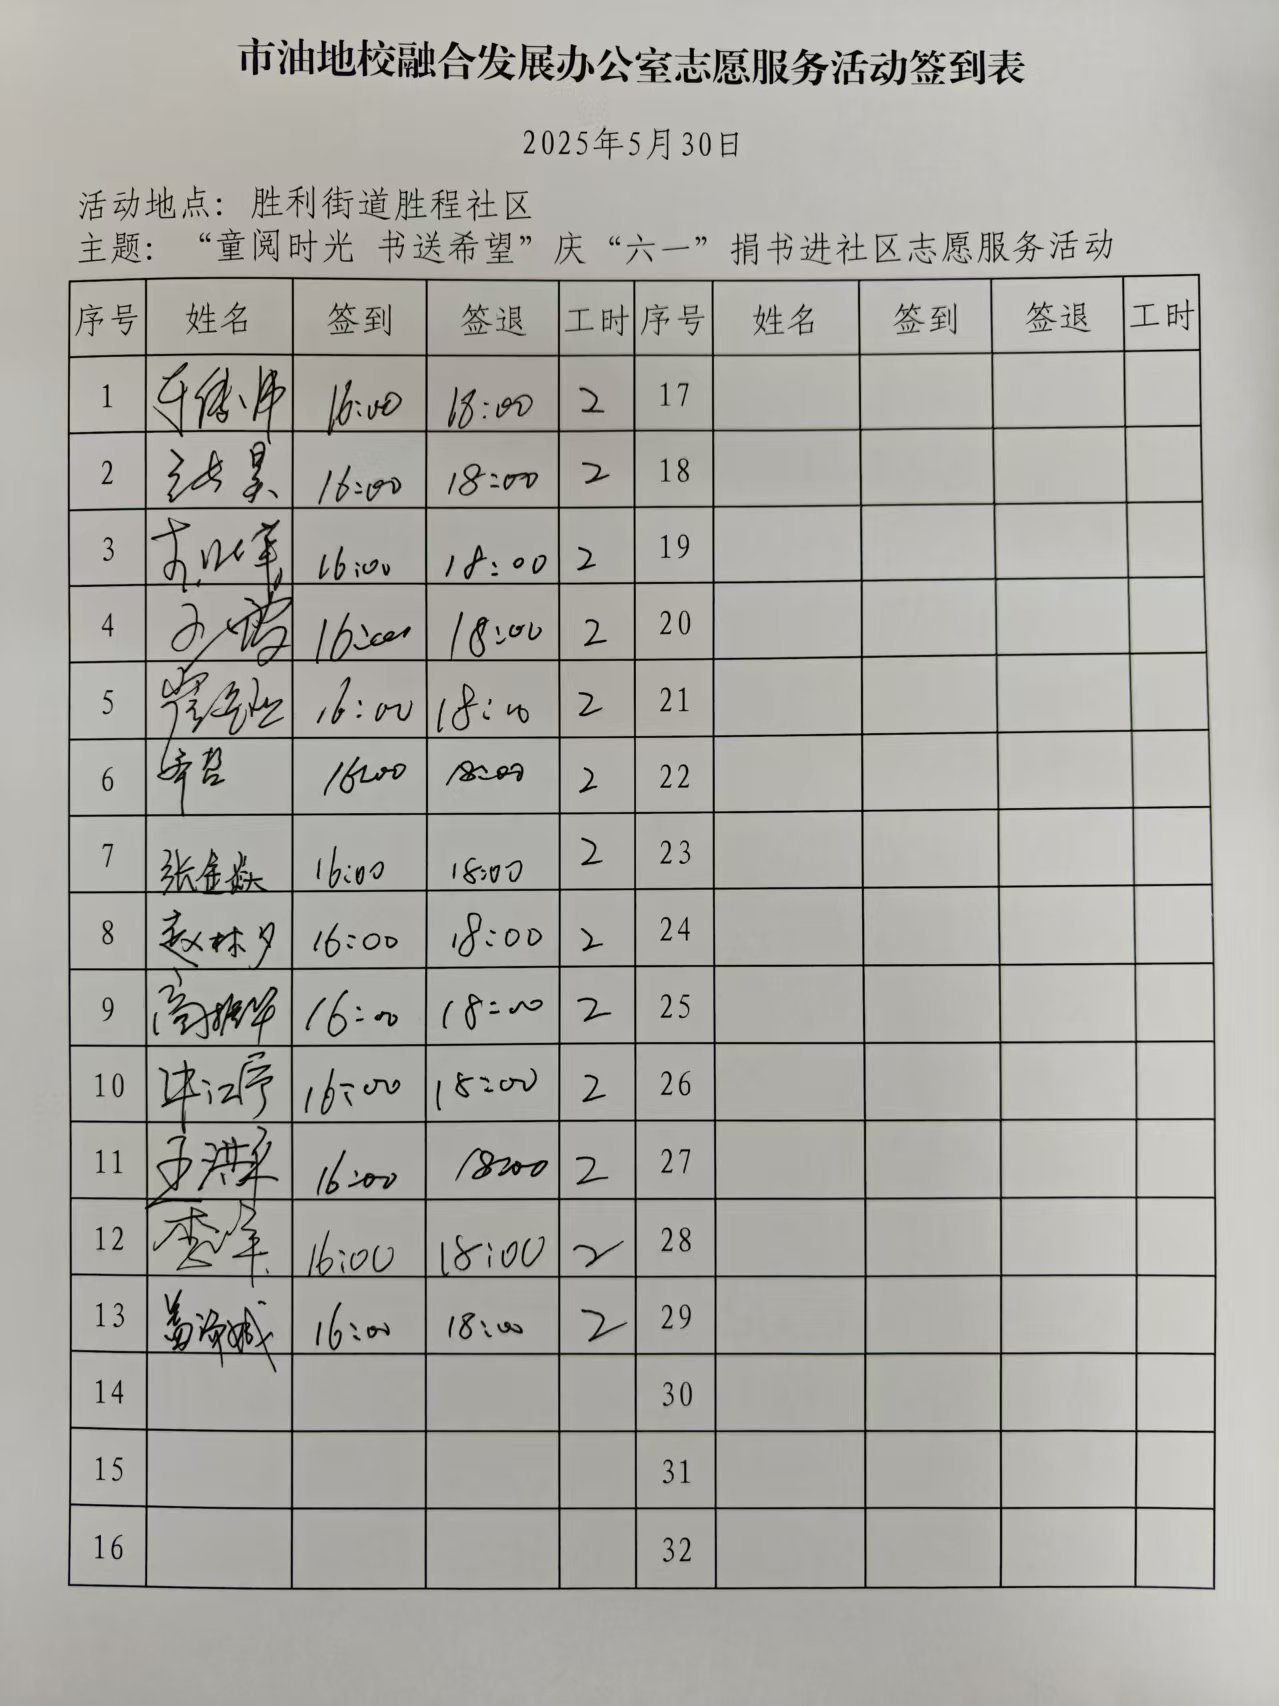 市油地校融合发展办公室志愿服务活动签到表
2025年5月30日
活动地点：胜利街道胜程社区
主题：“童阅时光 书送希望”庆“六一”捐书进社区志愿服务活动
序号 姓名 签到 签退 工时 序号 姓名 签到 签退 工时
1 16:00 18:00 2 17
2 16:00 18:00 2 18
3 16:00 18:00 2 19
4 16:00 18:00 2 20
5 16:00 18:00 2 21
6 16:00 18:00 2 22
7 张金焱 16:00 18:00 2 23
8 赵林夕 16:00 18:00 2 24
9 高振华 16:00 18:00 2 25
10 16:00 18:00 2 26
11 16:00 18:00 2 27
12 16:00 18:00 2 28
13 16:00 18:00 2 29
14 30
15 31
16 32